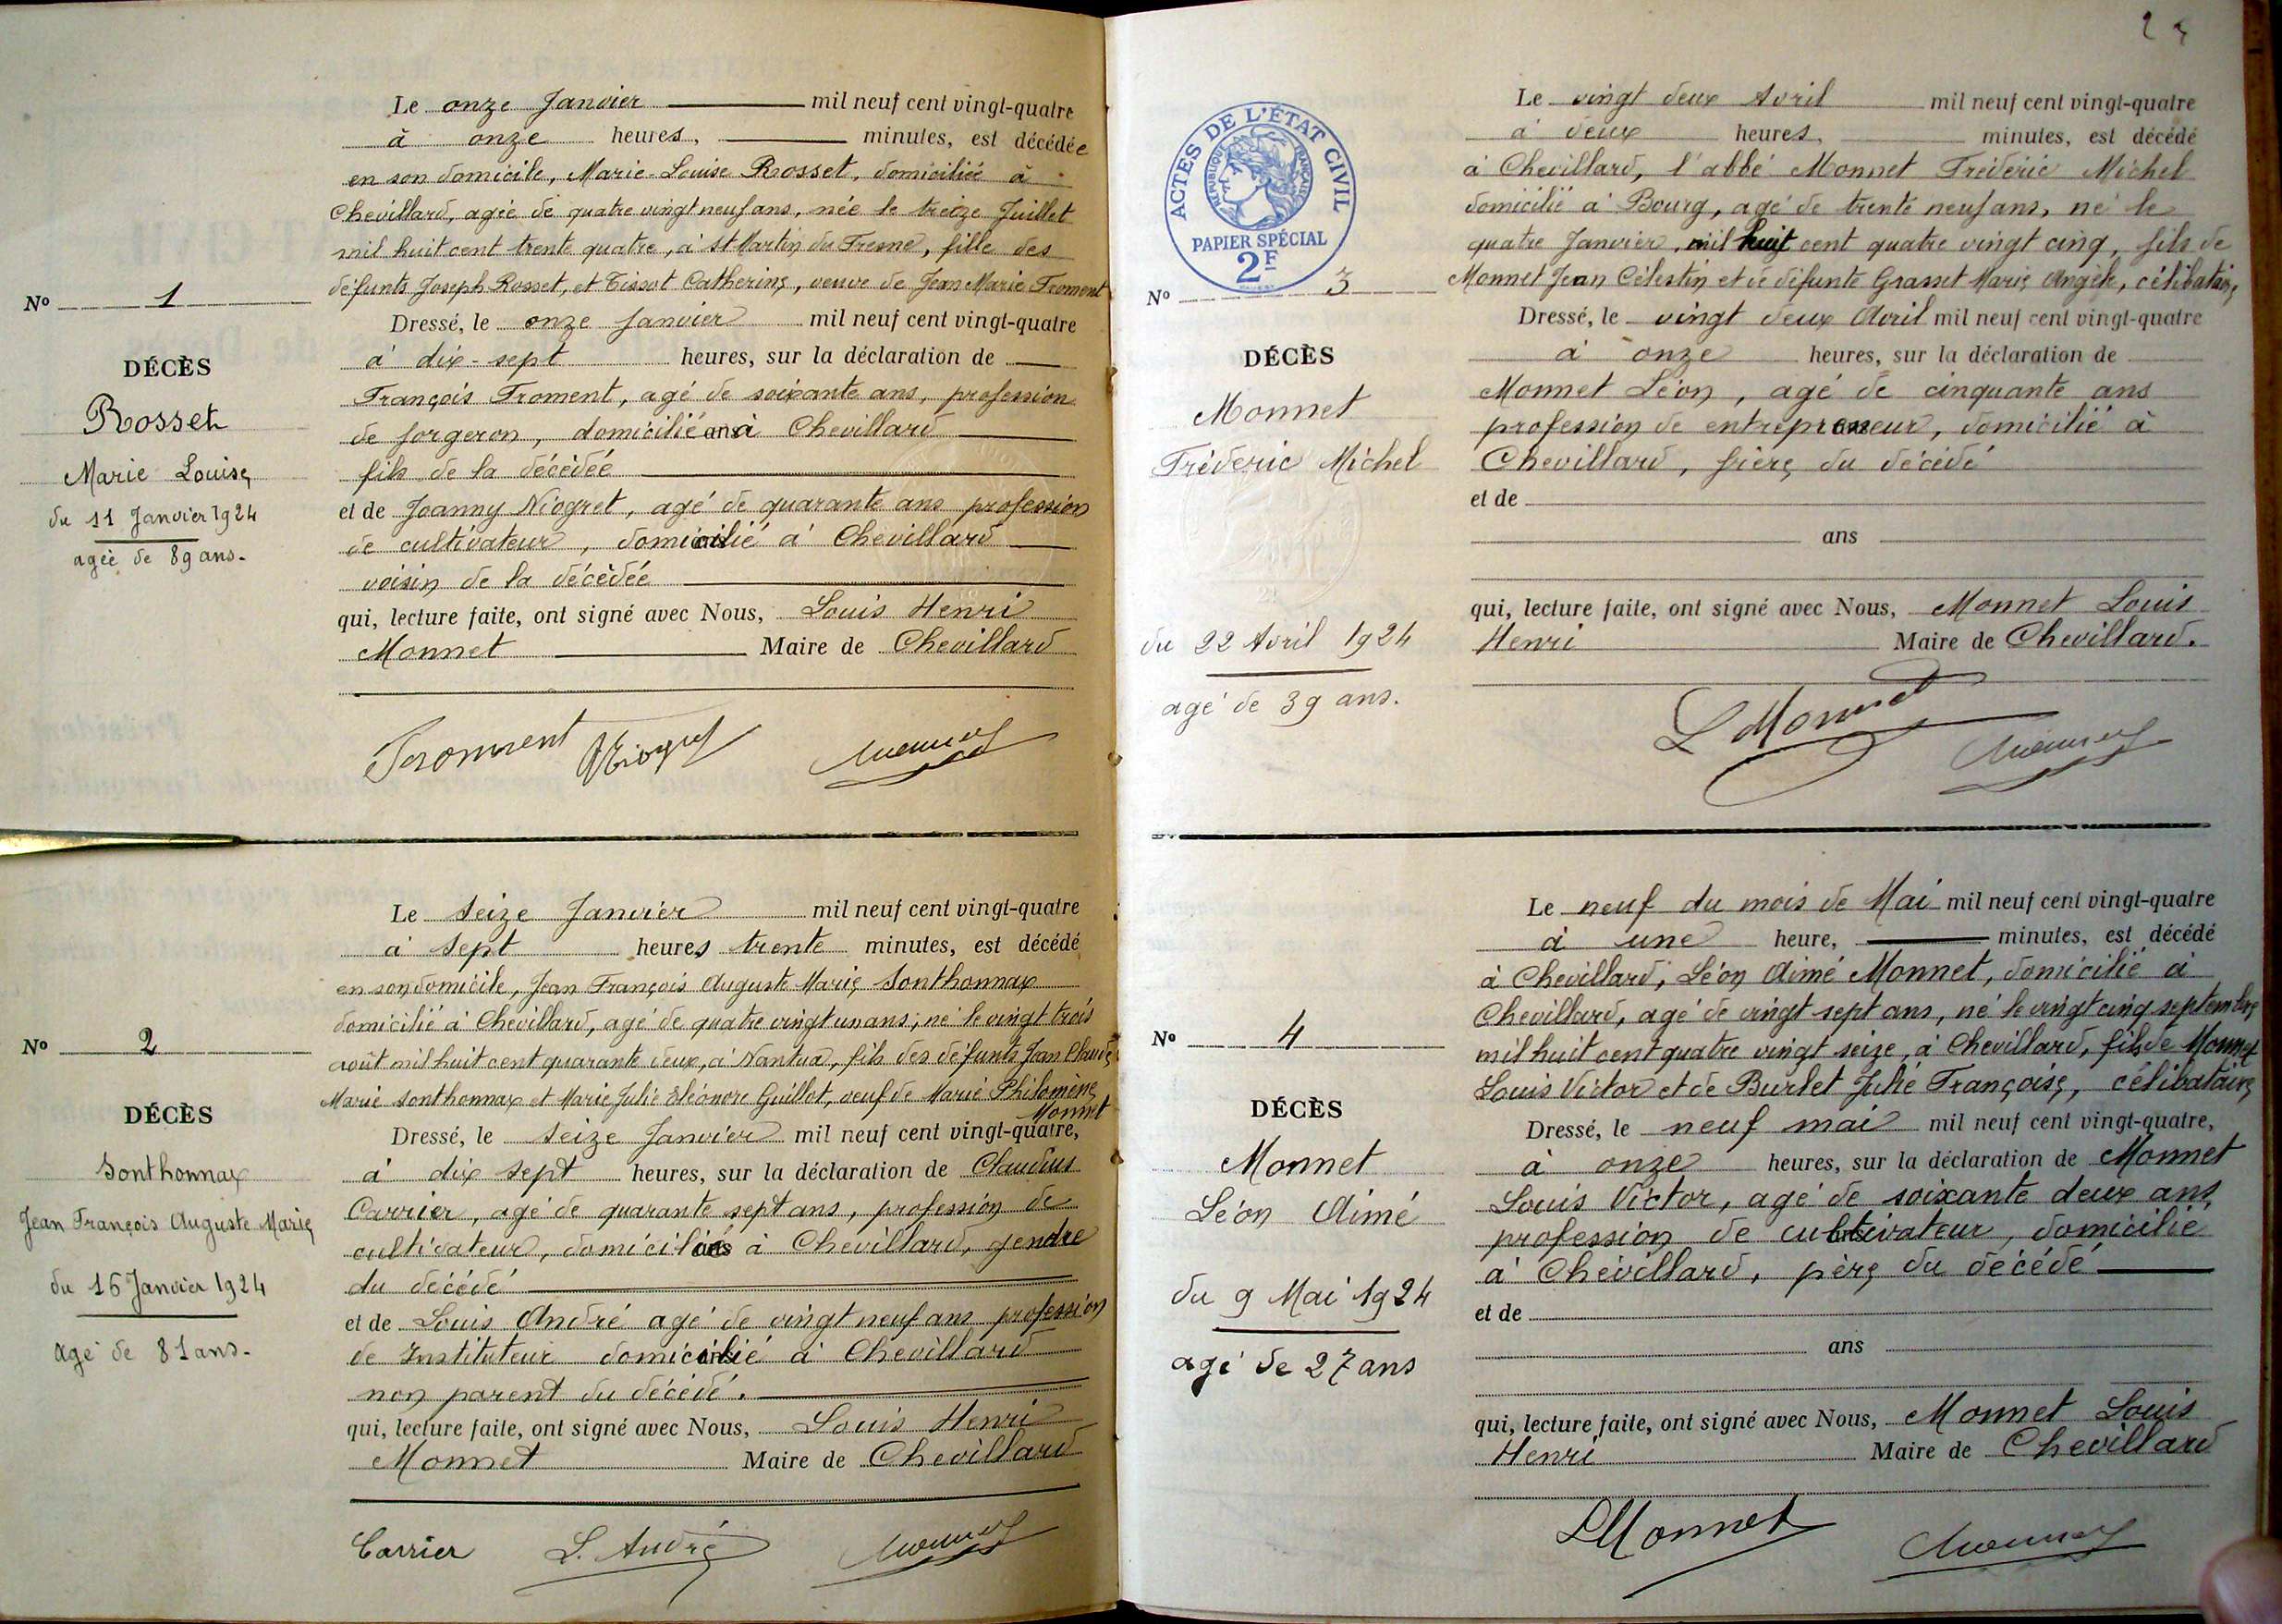 Le onze Janvier mil neuf cent vingt-quatre
à onze heures, minutes, est décédée
en son domicile, Marie-Louise Rosset, domiciliée à
Chevillard, agée de quatre vingt neuf ans, née le treize Juillet
mil huit cent trente quatre, à St Martin du Fresne, fille des
défunts Joseph Rosset, et Tissot Catherine, veuve de Jean Marie Froment
Nº 1
Dressé, le onze Janvier mil neuf cent vingt-quatre
à dix-sept heures, sur la déclaration de
DÉCÈS
Rosset
Marie Louise
du 11 Janvier 1924
agée de 89 ans.
François Froment, agé de soixante ans, profession
de forgeron, domicilié ans à Chevillard
fils de la décédée
et de Joanny Niogret, agé de quarante ans profession
de cultivateur, domicilié à Chevillard
voisin de la décédée
qui, lecture faite, ont signé avec Nous, Louis Henri
Monnet Maire de Chevillard
Froment Niogret
Le seize Janvier mil neuf cent vingt-quatre
à sept heures trente minutes, est décédé
en son domicile, Jean François Auguste Marie Sonthonnax
domicilié à Chevillard, agé de quatre vingt un ans, né le vingt trois
août mil huit cent quarante deux, à Nantua, fils des défunts Jean Claude
Marie Sonthonnax et Marie Julie Eléonore Guillot, veuf de Marie Philomène
Monnet
Nº 2
DÉCÈS
Sonthonnax
Jean François Auguste Marie
du 16 Janvier 1924
agé de 81 ans.
Dressé, le seize Janvier mil neuf cent vingt-quatre,
à dix sept heures, sur la déclaration de Claudius
Carrier, agé de quarante sept ans, profession de
cultivateur, domicilié ans à Chevillard, gendre
du décédé
et de Louis André agé de vingt neuf ans profession
de Instituteur domicilié à Chevillard
non parent du décédé.
qui, lecture faite, ont signé avec Nous, Louis Henri
Monnet Maire de Chevillard
Carrier L. André
ACTES DE L'ÉTAT CIVIL
RÉPUBLIQUE FRANÇAISE
PAPIER SPÉCIAL
2F
Le vingt deux Avril mil neuf cent vingt-quatre
à deux heures, minutes, est décédé
à Chevillard, l'abbé Monnet Fréderic Michel
domicilié à Bourg, agé de trente neuf ans, né le
quatre Janvier, mil huit cent quatre vingt cinq, fils de
Monnet Jean Célestin et de défunte Grasset Marie Angèle, célibataire
Nº 3
DÉCÈS
Monnet
Fréderic Michel
du 22 Avril 1924
agé de 39 ans.
Dressé, le vingt deux Avril mil neuf cent vingt-quatre
à onze heures, sur la déclaration de
Monnet Léon, agé de cinquante ans
profession de entrepreneur, domicilié à
Chevillard, frère du décédé
et de
ans
qui, lecture faite, ont signé avec Nous, Monnet Louis
Henri Maire de Chevillard.
L Monnet
Le neuf du mois de Mai mil neuf cent vingt-quatre
à une heure, minutes, est décédé
à Chevillard, Léon Aimé Monnet, domicilié à
Chevillard, agé de vingt sept ans, né le vingt cinq septembre
mil huit cent quatre vingt seize, à Chevillard, fils de Monnet
Louis Victor et de Burlet Julie Françoise, célibataire
Nº 4
DÉCÈS
Monnet
Léon Aimé
du 9 Mai 1924
agé de 27 ans
Dressé, le neuf mai mil neuf cent vingt-quatre,
à onze heures, sur la déclaration de Monnet
Louis Victor, agé de soixante deux ans
profession de cultivateur, domicilié
à Chevillard, père du décédé
et de
ans
qui, lecture faite, ont signé avec Nous, Monnet Louis
Henri Maire de Chevillard
LMonnet